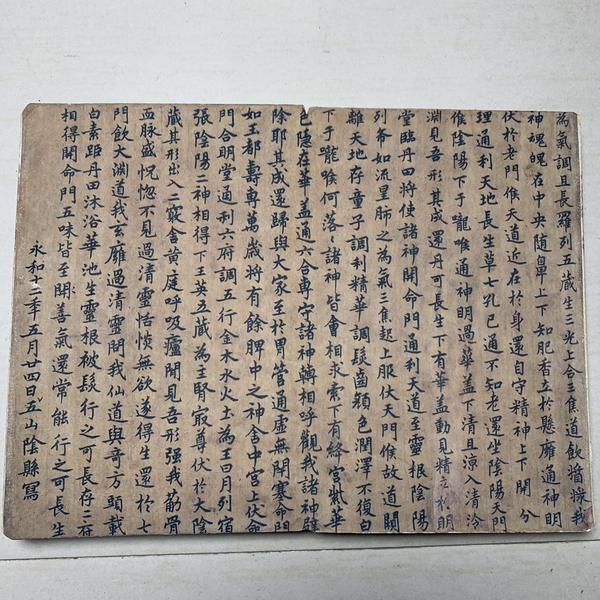 為氣調且長羅列五藏生三光上合三焦道飲醬漿我
神魂魄在中央隨鼻上下知肥香立於懸癰通神明
伏於老門候天道近在於身還自守精神上下開分
理通利天地長生草七孔已通不知老還坐陰陽天門
候陰陽下于嚨喉通神明過華蓋下清且涼入清泠
淵見吾形其成還丹可長生下有華蓋動見精立於明
堂臨丹田將使諸神開命門通利天道至靈根陰陽
列布如流星肺之為氣三焦起上服伏天門候故道闚
離天地存童子調利精華調髮齒顏色潤澤不復白
下于嚨喉何落〻諸神皆會相求索下有絳宮紫華
色隱在華蓋通六合專守諸神轉相呼觀我諸神辟
除耶其成還歸與大家至於胃管通虛無閉塞命門
如王都壽專萬歲將有餘脾中之神舍中宮上伏命
門合明堂通利六府調五行金木水火土為王日月列宿
張陰陽二神相得下王英五藏為王腎最尊伏於大陰
藏其形出入二竅舍黃庭呼吸廬間見吾形強我筋骨
血脈盛恍惚不見過清靈恬惔無欲遂得生還於七
門飲大淵道我玄癰過清靈問我仙道與奇方頭載
白素距丹田沐浴華池生靈根被髮行之可長存二府
相得開命門五味皆至開善氣還常能行之可長生
永和十二年五月廿四日五山陰縣寫